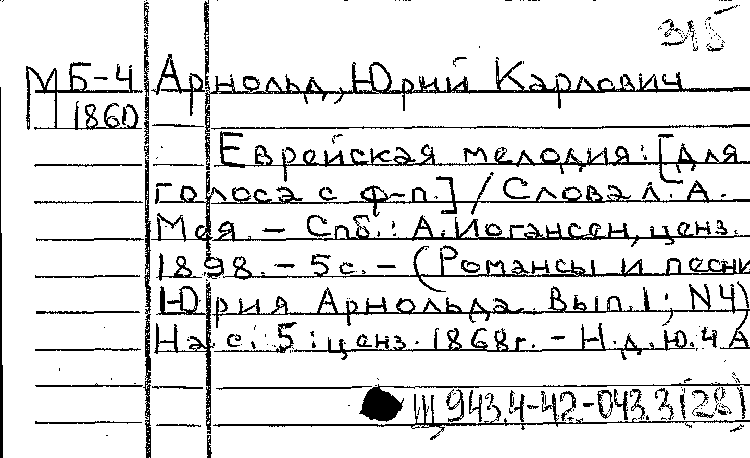 315
МБ-4 Арнольд, Юрий Карлович
1860
Еврейская мелодия: [для
голоса с ф-п.] / Слова Л. А.
Мея. - Спб.: А. Иогансен, ценз.
1898. - 5 с. - (Романсы и песни
Юрия Арнольда. Вып. 1; N4)
На с. 5: ценз. 1868г. - Н.д. Ю. 4 А
Ш 943.4-42-043.3(28)